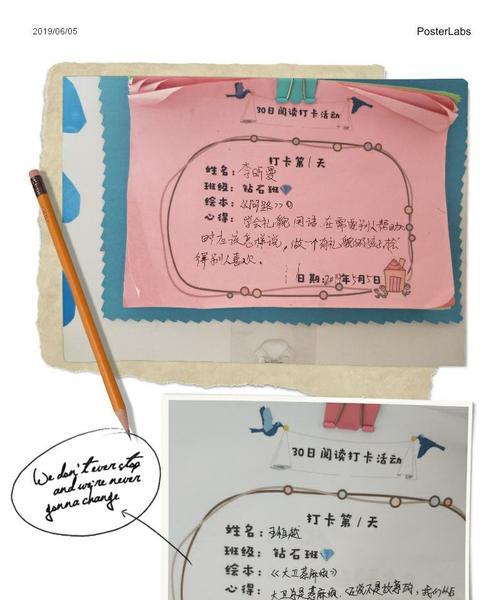 2019/06/05
PosterLabs
30日阅读打卡活动
打卡第1天
姓名：李昕蔓
班级：钻石班
绘本：《问路》
心得：学会礼貌用语，在需要别人帮助
时应该怎样说，做一个有礼貌的孩子
得别人喜欢。
日期：2019年5月5日
We don't ever stop
and we're never
gonna change
30日阅读打卡活动
打卡第1天
姓名：
班级：钻石班
绘本：《大卫惹麻烦》
心得：大卫总是惹麻烦，但说不是故意的，我们